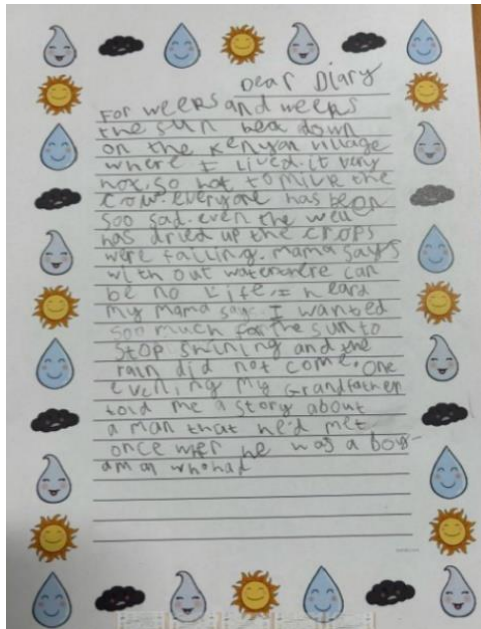 Dear Diary
For weeks and weeks
the sun bea down
on the Kenyan village
where I lived. it very
hot. so hot to milk the
cow. everyone has been
soo sad. even the well
has dried up the crops
were failing. mama says
with out water there can
be no life. I heard
my mama say. I wanted
soo much for the sun to
stop shining and the
rain did not come. One
evening my Grandfather
told me a story about
a man that he'd met
once wher he was a boy
aman who had